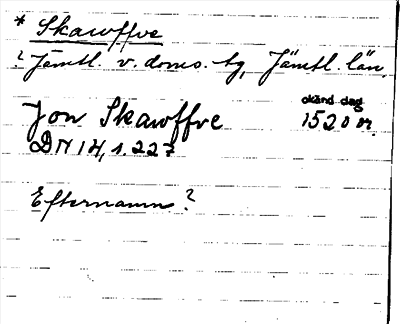 * Skawffve
? Jämtl. v. doms. tg, Jämtl. län.
okänd dag
Jon Skawffve 1520 or.
DN 14, 1.227
Efternamn?